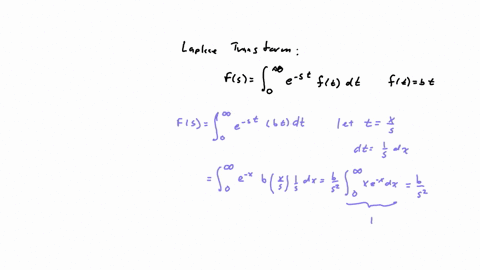 Laplace Transform:
F(s) = ∫₀^∞ e^{-st} f(t) dt    f(t) = bt
F(s) = ∫₀^∞ e^{-st} (bt) dt    let t = x/s
dt = 1/s dx
= ∫₀^∞ e^{-x} b(x/s) 1/s dx = b/s² ∫₀^∞ x e^{-x} dx = b/s²
1